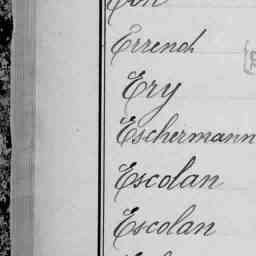 Errend
Ery
Eschermann
Escolan
Escolan